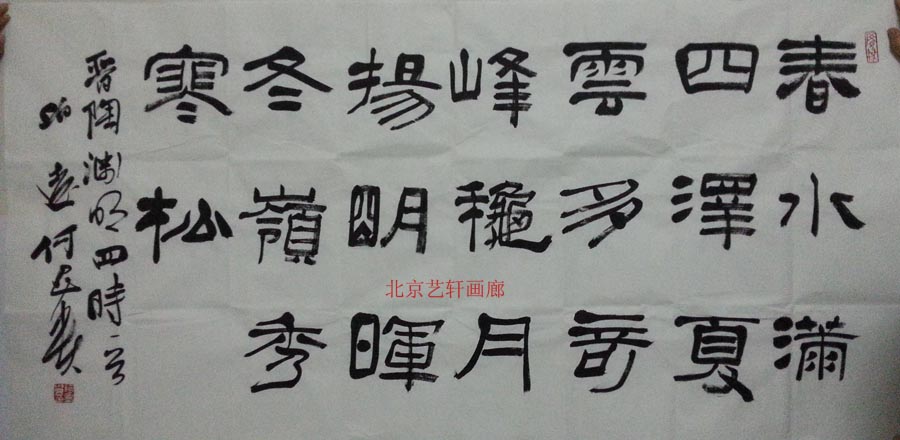 春水滿
四澤夏
雲多奇
峰穐月
揚明暉
冬嶺秀
寒松
晉陶渊明四時
遠何应辉
北京艺轩画廊